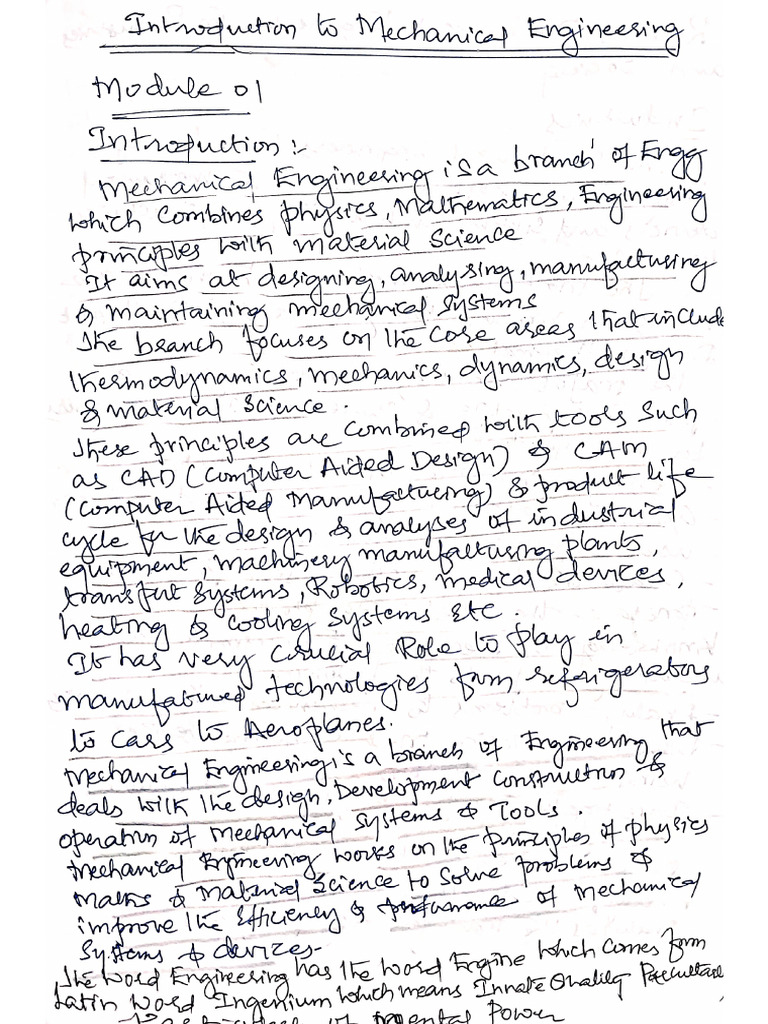 Introduction to Mechanical Engineering
Module 01
Introduction :-
Mechanical Engineering is a branch of Engg
which combines physics, Mathematics, Engineering
principles with material science
It aims at designing, analysing, manufacturing
& maintaining mechanical systems
The branch focuses on the core areas that include
thermodynamics, mechanics, dynamics, design
& material science.
These principles are combined with tools such
as CAD (Computer Aided Design) & CAM
(Computer Aided Manufacturing) & product life
cycle for the design & analyses of industrial
equipment, machinery manufacturing plants,
transport systems, Robotics, medical devices,
heating & cooling systems Etc.
It has very crucial Role to play in
manufatured technologies from refrigerators
to cars to Aeroplanes.
Mechanical Engineering is a branch of Engineering that
deals with the design, Development construction &
operation of mechanical systems & Tools.
Mechanical Engineering works on the principles of physics
Maths & Material Science to solve problems &
improve the Efficiency & performance of Mechanical
Systems & devices-
The word Engineering has the word Engine which comes form
Latin word Ingenium which means Innate Quality
of mental Power